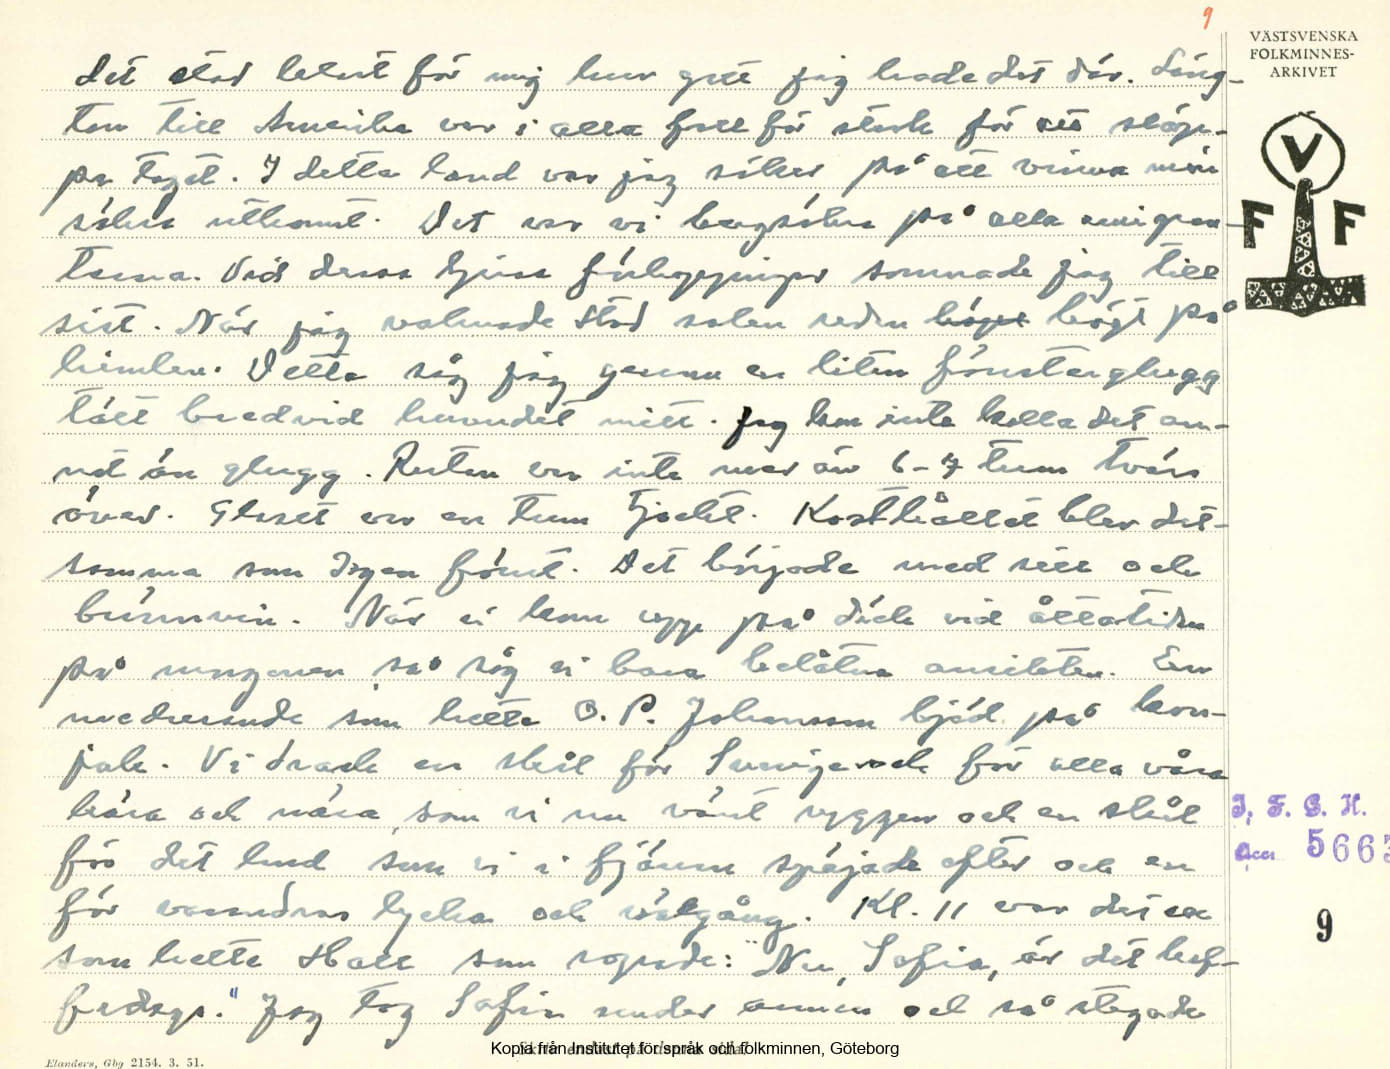 9
VÄSTSVENSKA
FOLKMINNES-
ARKIVET
V
F F
det stod klart för mig hur gott jag hade det där. Läng-
tan till Amerika var i alla fall för stark för att släp-
pa taget. I detta land var jag säker på att vinna min
säkra utkomst. Det var vi bergsäkra på alla emigran-
terna. Vid dessa ljusa förhoppningar somnade jag till
sist. När jag vaknade stod solen redan högt på
himlen. Detta såg jag genom en liten fönsterglugg
tätt bredvid huvudet mitt. Jag kan inte kalla det an-
nat än glugg. Rutan var inte mer än 6-7 tum tvärs
över. Glaset var en tum tjockt. Kosthållet blev det-
samma som dagen förut. Det började med sill och
brännvin. När vi kom upp på däck vid åttatiden
på morgonen så såg vi bara belåtna ansikten. En
medresande som hette O. P. Johansson bjöd på kon-
jak. Vi drack en skål för Sverige och för alla våra
kära och nära som vi nu vänt ryggen och en skål
för det land som vi i fjärran spejade efter och en
för varandras lycka och välgång. Kl. 11 var det en
som hette Hall som ropade: "Nu, Sofia, är det kaf-
fedags." Jag tog Sofia under armen och så stegade
I. F. G. H.
Acc. 5663
9
Elanders, Gbg 2154. 3. 51.
Kopia från Institutet för språk och folkminnen, Göteborg